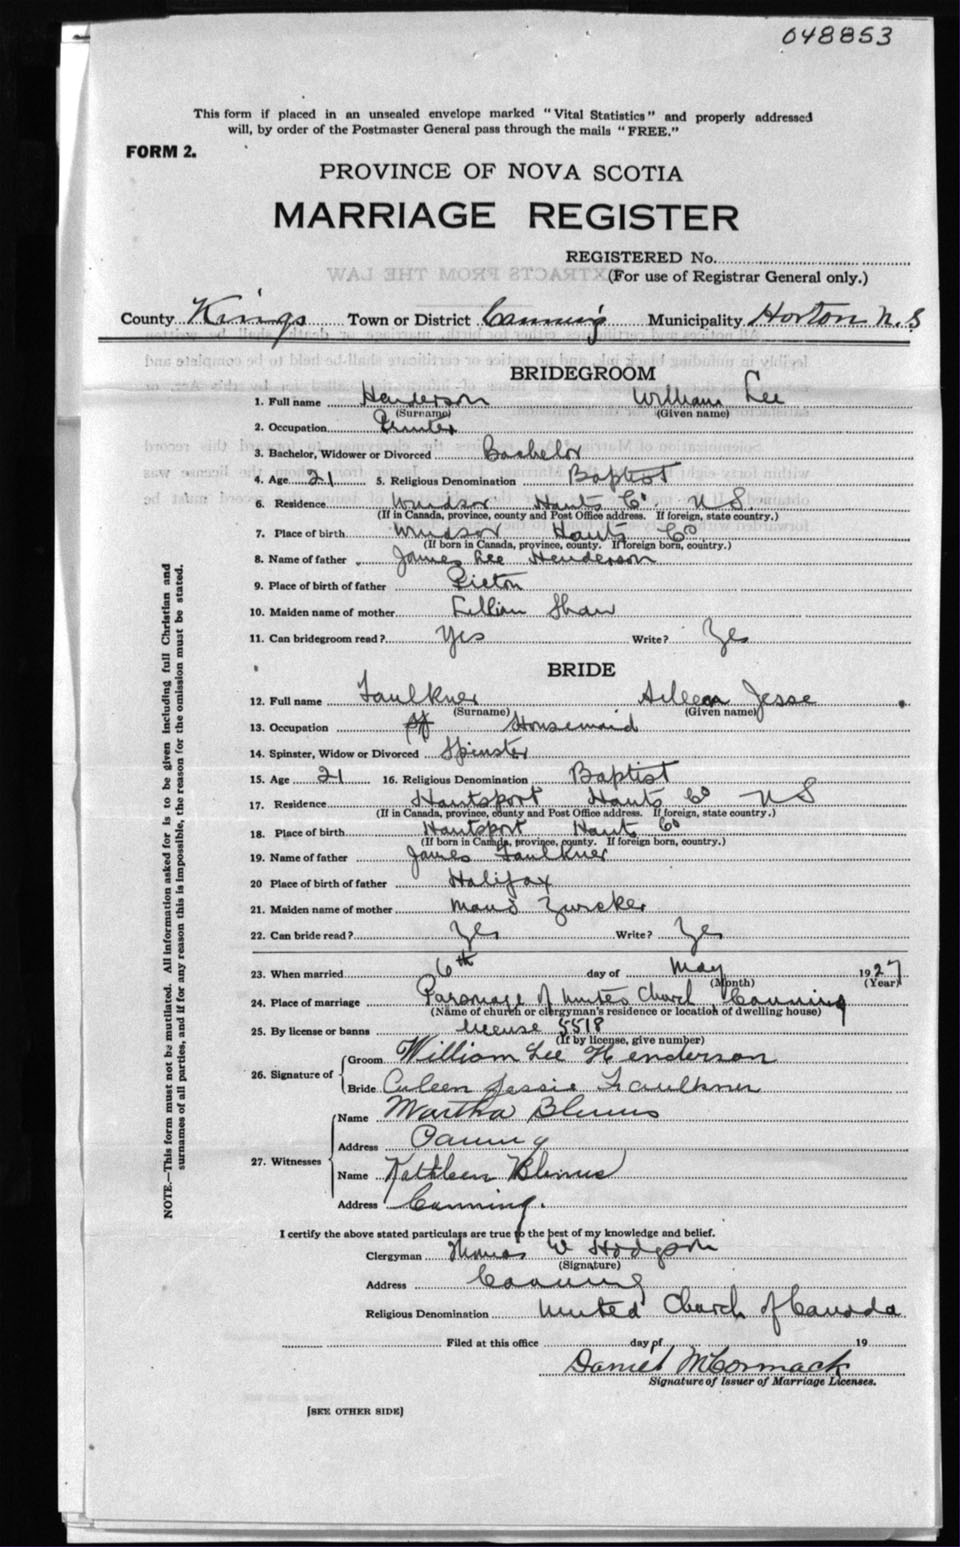 048853
This form if placed in an unsealed envelope marked "Vital Statistics" and properly addressed
will, by order of the Postmaster General pass through the mails "FREE."
FORM 2.
PROVINCE OF NOVA SCOTIA
MARRIAGE REGISTER
REGISTERED No.
(For use of Registrar General only.)
County Kings Town or District Canning Municipality Horton N.S
BRIDEGROOM
1. Full name Henderson William Lee
(Surname) (Given name)
2. Occupation Printer
3. Bachelor, Widower or Divorced Bachelor
4. Age 21 5. Religious Denomination Baptist
6. Residence Windsor Hants Co. N S.
(If in Canada, province, county and Post Office address. If foreign, state country.)
7. Place of birth Windsor Hants Co
(If born in Canada, province, county. If foreign born, country.)
8. Name of father James Lee Henderson
9. Place of birth of father Pictou
10. Maiden name of mother Lillian Shaw
11. Can bridegroom read? Yes Write? Yes
BRIDE
12. Full name Faulkner Aileen Jesse
(Surname) (Given name)
13. Occupation Housemaid
14. Spinster, Widow or Divorced Spinster
15. Age 21 16. Religious Denomination Baptist
17. Residence Hantsport Hants Co N S
(If in Canada, province, county and Post Office address. If foreign, state country.)
18. Place of birth Hantsport Hants Co
(If born in Canada, province, county. If foreign born, country.)
19. Name of father James Faulkner
20 Place of birth of father Halifax
21. Maiden name of mother Maud Zwicker
22. Can bride read? Yes Write? Yes
23. When married 6th day of May 1927
(Month) (Year)
24. Place of marriage Parsonage of United Church Canning
(Name of church or clergyman's residence or location of dwelling house)
25. By license or banns license 5518
(If by license, give number)
26. Signature of
Groom William Lee Henderson
Bride Aileen Jessie Faulkner
27. Witnesses
Name Martha
Address Canning
Name Kathleen
Address Canning.
I certify the above stated particulars are true to the best of my knowledge and belief.
Clergyman Thomas W Hodgson
(Signature)
Address Canning
Religious Denomination United Church of Canada
Filed at this office day of 19
Daniel McCormack
Signature of Issuer of Marriage Licenses.
[SEE OTHER SIDE]
NOTE.—This form must not be mutilated. All information asked for is to be given including full Christian and
surnames of all parties, and if for any reason this is impossible, the reason for the omission must be stated.